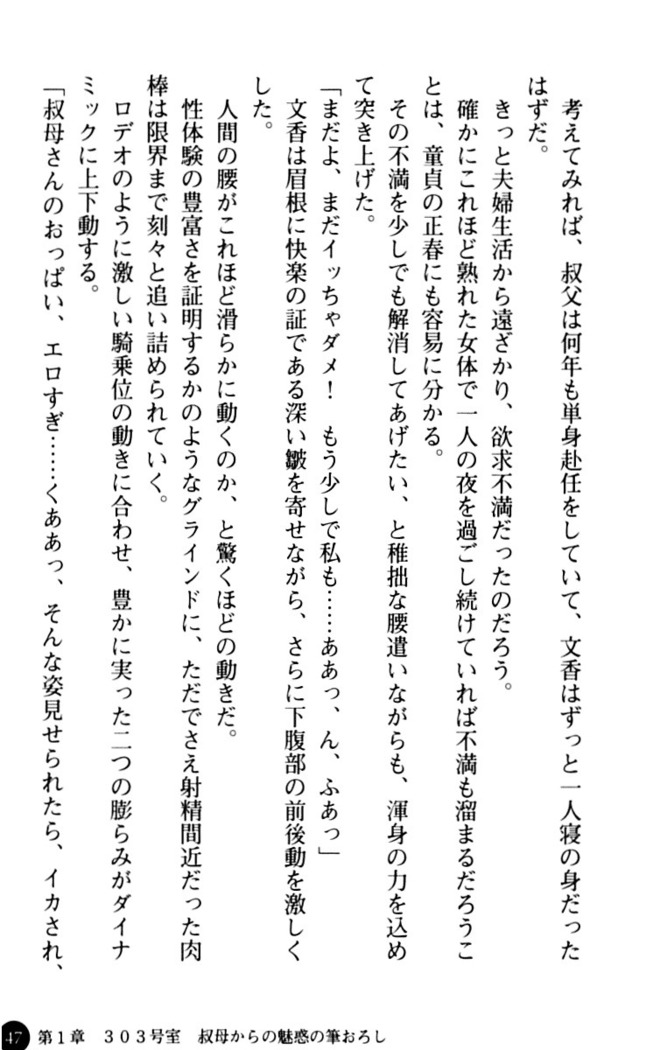 考えてみれば、叔父は何年も単身赴任をしていて、文香はずっと一人寝の身だった
はずだ。
きっと夫婦生活から遠ざかり、欲求不満だったのだろう。
確かにこれほど熟れた女体で一人の夜を過ごし続けていれば不満も溜まるだろうこ
とは、童貞の正春にも容易に分かる。
その不満を少しでも解消してあげたい、と稚拙な腰遣いながらも、渾身の力を込め
て突き上げた。
「まだよ、まだイッちゃダメ！　もう少しで私も……ああっ、ん、ふあっ」
文香は眉根に快楽の証である深い皺を寄せながら、さらに下腹部の前後動を激しく
した。
人間の腰がこれほど滑らかに動くのか、と驚くほどの動きだ。
性体験の豊富さを証明するかのようなグラインドに、ただでさえ射精間近だった肉
棒は限界まで刻々と追い詰められていく。
ロデオのように激しい騎乗位の動きに合わせ、豊かに実った二つの膨らみがダイナ
ミックに上下動する。
「叔母さんのおっぱい、エロすぎ……くああっ、そんな姿見せられたら、イカされ、
47 第1章　303号室　叔母からの魅惑の筆おろし